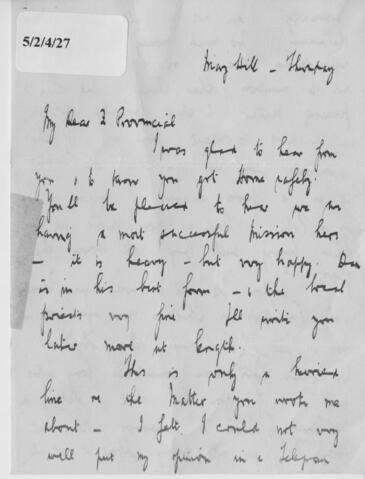 5/2/4/27
Mary Hill – Thursday
My Dear Fr Provincial
I was glad to hear from
you & to know you got Home safely.
You'll be pleased to hear we are
having a most successful Mission here
– it is heavy – but very happy.
is in his best form – & the local
priests very fine I'll write you
later more at length.
This is only a hurried
line re the Matter you wrote me
about – I felt I could not very
well put my opinion in a Telegram